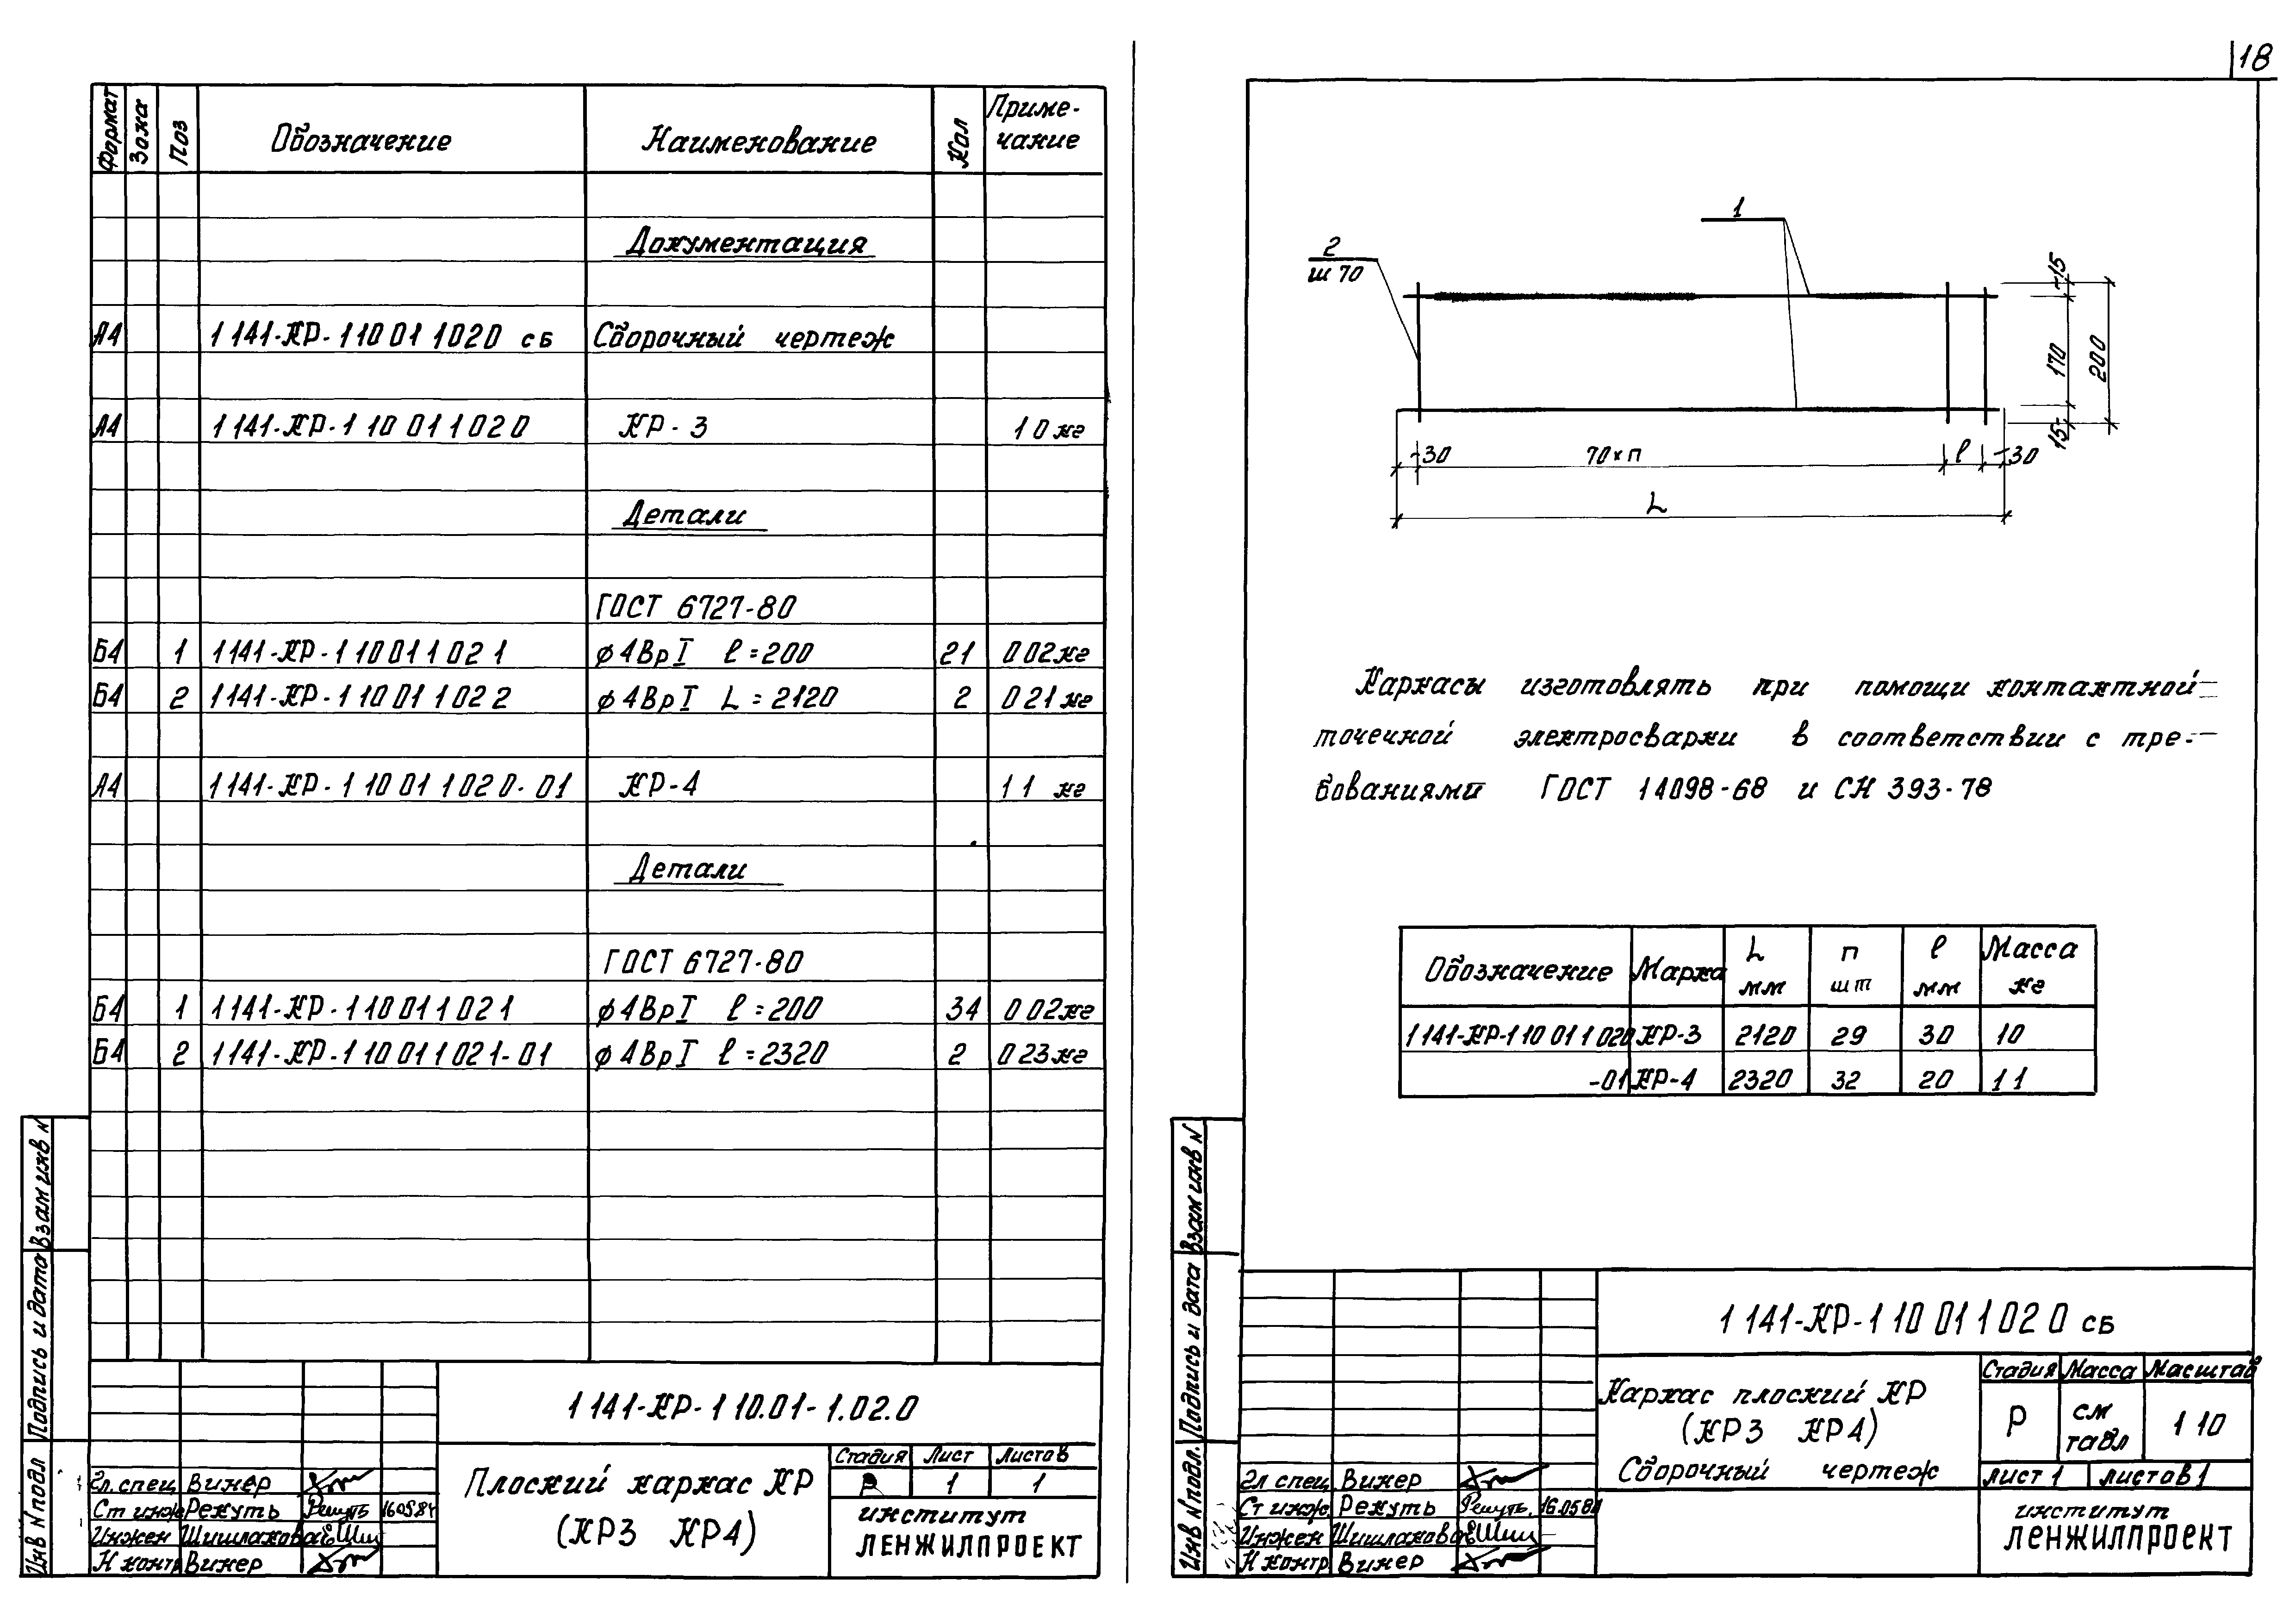 18
Формат Зона Поз Обозначение Наименование Кол Приме-
чание
Документация
А4 1 141-КР-1 10 01 1 02 0 СБ Сборочный чертеж
А4 1 141-КР-1 10 01 1 02 0 КР-3 1 0 кг
Детали
ГОСТ 6727-80
Б4 1 1 141-КР-1 10 01 1 02 1 ϕ4ВрI ℓ=200 21 0 02 кг
Б4 2 1 141-КР-1 10 01 1 02 2 ϕ4ВрI L=2120 2 0 21 кг
А4 1 141-КР-1 10 01 1 02 0-01 КР-4 1 1 кг
Детали
ГОСТ 6727-80
Б4 1 1 141-КР-1 10 01 1 02 1 ϕ4ВрI ℓ=200 34 0 02 кг
Б4 2 1 141-КР-1 10 01 1 02 1-01 ϕ4ВрI ℓ=2320 2 0 23 кг
Инв N подл Подпись и дата Взам инв N
1 141-КР-1 10.01-1.02.0
Гл. спец Винер
Ст инж Рекуть Рекуть 16.05.84
Инжен Шишлакова
Н контр Винер
Плоский каркас КР
(КР3 КР4)
Стадия Лист Листов
Р 1 1
институт
ЛЕНЖИЛПРОЕКТ
1
2
ш 70
15
170
200
15
30 70×п ℓ 30
L
Каркасы изготовлять при помощи контактной
точечной электросварки в соответствии с тре-
бованиями ГОСТ 14098-68 и СН 393-78
Обозначение Марка L мм п шт ℓ мм Масса кг
1 141-КР-1 10 01 1 02 0 КР-3 2120 29 30 1 0
-01 КР-4 2320 32 20 1 1
Инв N подл. Подпись и дата Взам инв N
1 141-КР-1 10 01 1 02 0 СБ
Гл спец Винер
Ст инж Рекуть Рекуть. 16.05.84
Инжен Шишлакова
Н контр Винер
Каркас плоский КР
(КР3 КР4)
Сборочный чертеж
Стадия Масса Масштаб
Р см
табл 1 10
лист 1 листов 1
институт
ЛЕНЖИЛПРОЕКТ